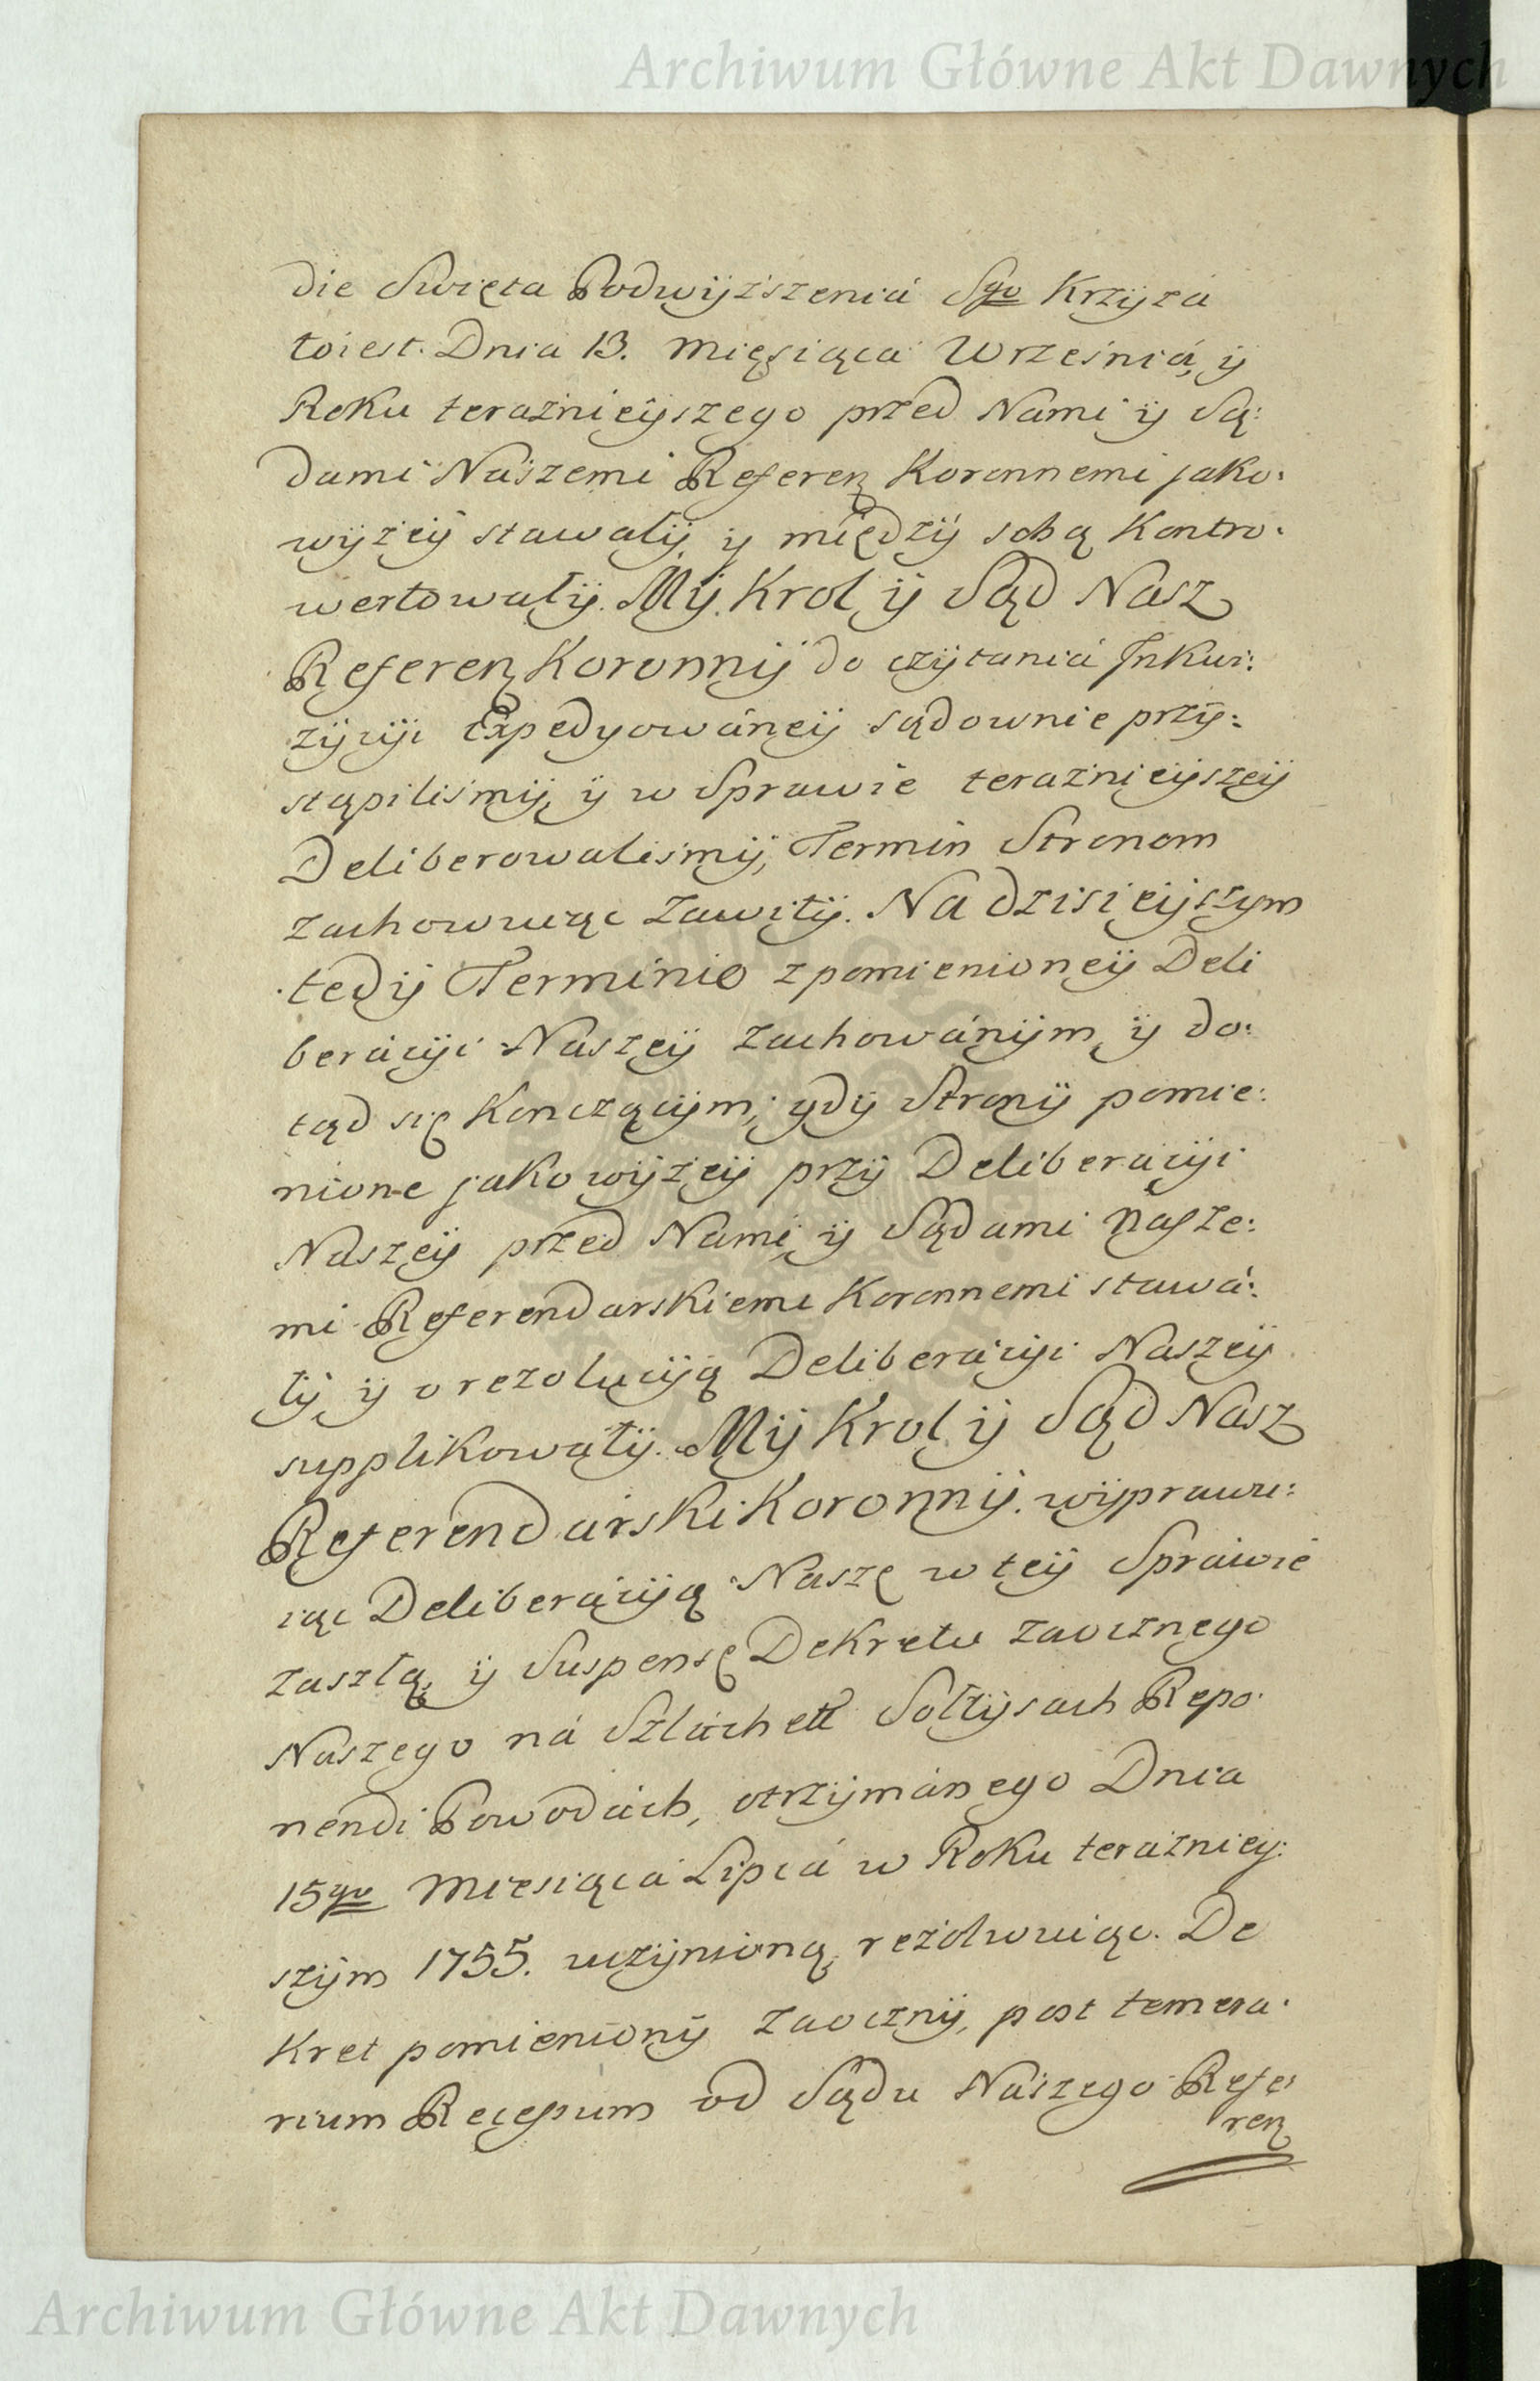 Archiwum Główne Akt Dawnych
die Swięta Podwyższeniá Sgo Krzyżá
toiest Dnia 13. Mięsiąca Wrześniá, y
Roku teraźnieyszego przed Nami y Są:
dami Naszemi Referen Koronnemi jako:
wyżey stawały, y między sobą Kontro:
wertowały. My Krol y Sąd Nasz
Referen Koronny do czytaniá Inkwi:
zycyi Expedyowáney sądownie przy:
stąpilismy, y w Sprawie teraźnieyszey
Deliberowalismy, Termin Stronom
zachowuiąc Zawity. Na dzisieyszym
tedy Terminie z pomienioney Deli
beracyi Naszey zachowánym, y do:
tąd się Konczącym, gdy Strony pomie:
nione jako wyżey przy Deliberacyi
Naszey przed Nami, y Sądami Nasze:
mi Referendarskiemi Koronnemi stawá:
ły, y o rezolucyą Deliberacyi Naszey
supplikowały. My Krol y Sąd Nasz
Referendarski Koronny. wyprawu:
iąc Deliberacyą Naszę w tey Sprawie
zaszłą, y Suspensę Dekretu zaocznego
Naszego ná Szláchett Sołtysach Repo:
nendi Powodách, otrzymánego Dnia
15go Miesiąca Lipcá w Roku teraźniey:
szym 1755. uczynioną, rezolwuiąc. De
Kret pomieniony Zaoczny, post temera:
rium Recessum od Sądu Naszego Refe:
ren
Archiwum Główne Akt Dawnych